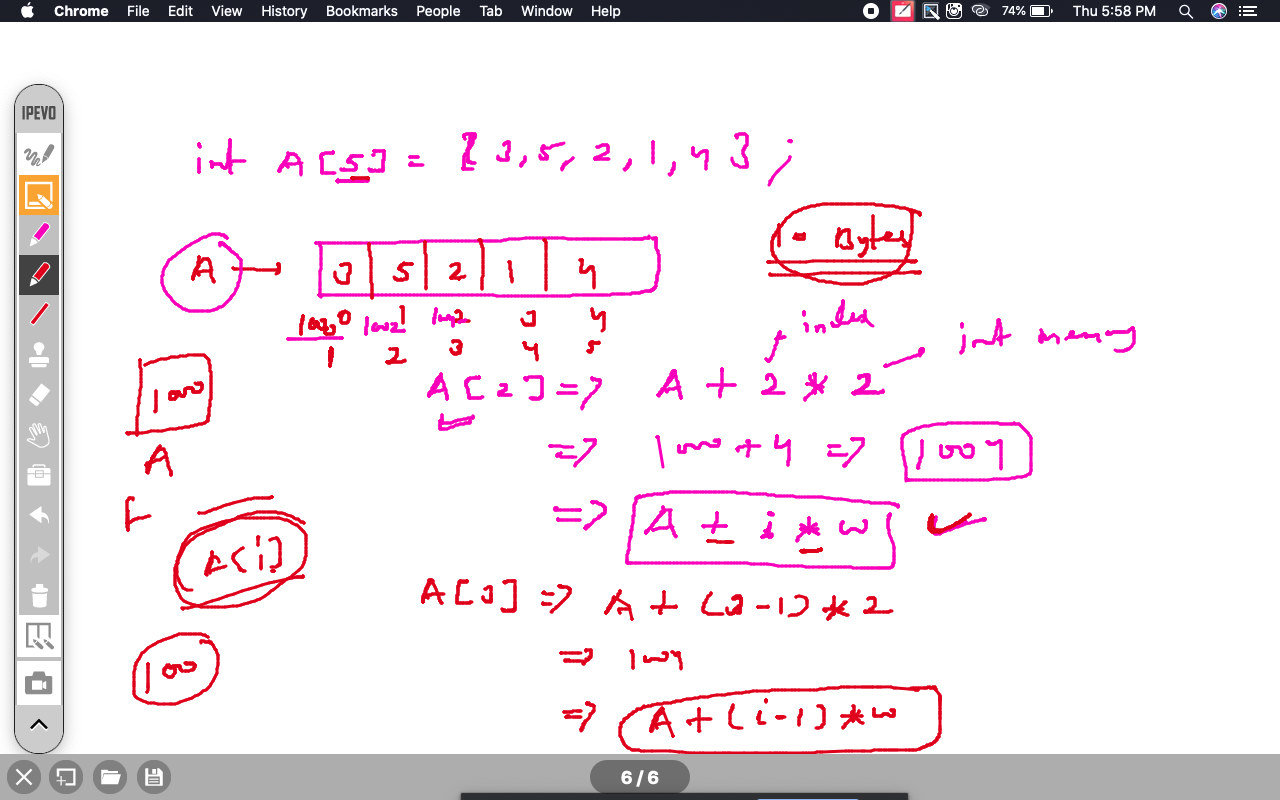 Chrome File Edit View History Bookmarks People Tab Window Help 74% Thu 5:58 PM
IPEVO
int A[5] = { 3, 5, 2, 1, 4 } ;
A → 3 5 2 1 4
Bytes
0 1 2 3 4
1 2 3 4 5
index
int memory
1000
A
A[2] => A + 2 * 2
=> 1000 + 4 => 1004
=> A + i * w
A[i]
A[3] => A + (3-1) * 2
=> 1004
100
=> A + (i-1) * w
6 / 6